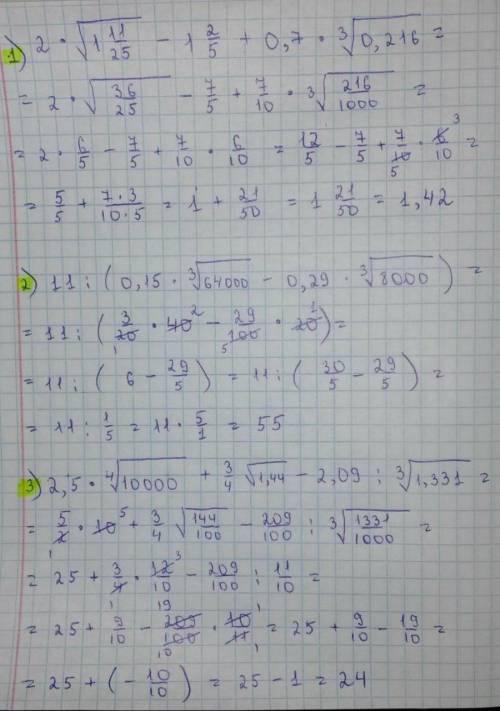 1) 2 · √(1 11/25) - 1 2/5 + 0,7 · ³√(0,216) =
= 2 · √(36/25) - 7/5 + 7/10 · ³√(216/1000) =
= 2 · 6/5 - 7/5 + 7/10 · 6/10 = 12/5 - 7/5 + 7/10 5 · 6 3/10 =
= 5/5 + 7·3/10·5 = 1 + 21/50 = 1 21/50 = 1,42
2) 11 : (0,15 · ³√64000 - 0,29 · ³√8000) =
= 11 : (3/20 1 · 40 2 - 29/100 5 · 20 1) =
= 11 : (6 - 29/5) = 11 : (30/5 - 29/5) =
= 11 : 1/5 = 11 · 5/1 = 55
3) 2,5 · ⁴√10000 + 3/4 √1,44 - 2,09 : ³√1,331 =
= 5/2 1 · 10 5 + 3/4 √(144/100) - 209/100 : ³√(1331/1000) =
= 25 + 3/4 1 · 12 3/10 - 209/100 : 11/10 =
= 25 + 9/10 - 209 19/100 10 · 10 1/11 1 = 25 + 9/10 - 19/10 =
= 25 + (- 10/10) = 25 - 1 = 24